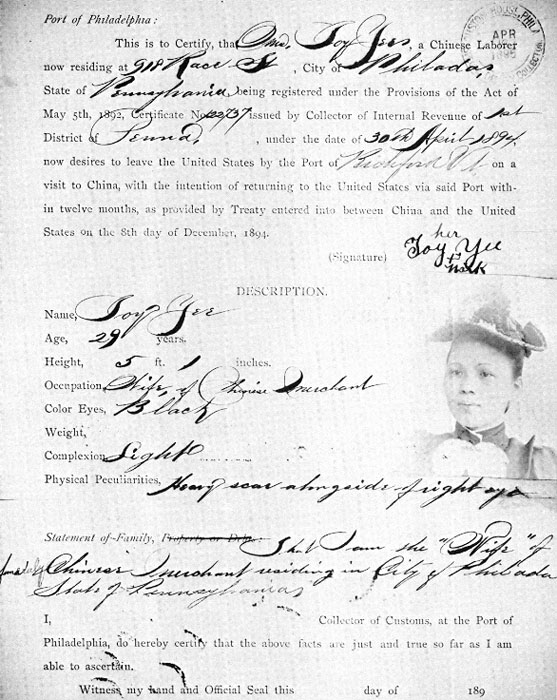 Port of Philadelphia:
CUSTOM HOUSE, PHILA
APR
COLLECTOR
This is to Certify, that Toy Yee, a Chinese Laborer
now residing at 918 Race St, City of Philada,
State of Pennsylvania, being registered under the Provisions of the Act of
May 5th, 1892, Certificate No. 22737 issued by Collector of Internal Revenue of 1st
District of Penna, , under the date of 30th April 1894
now desires to leave the United States by the Port of Richford Vt on a
visit to China, with the intention of returning to the United States via said Port with-
in twelve months, as provided by Treaty entered into between China and the United
States on the 8th day of December, 1894.
her
(Signature) Toy Yee
mark
DESCRIPTION.
Name, Toy Yee
Age, 29 years.
Height, 5 ft. 1 inches.
Occupation, Wife of Chinese Merchant
Color Eyes, Black
Weight,
Complexion, Light
Physical Peculiarities, Heavy scar alongside of right eye
Statement of Family, Property or Debts: That I am the "Wife" of
Chinese Merchant residing in City of Philada
State of Pennsylvania,
I, Collector of Customs, at the Port of
Philadelphia, do hereby certify that the above facts are just and true so far as I am
able to ascertain.
Witness my hand and Official Seal this day of 189